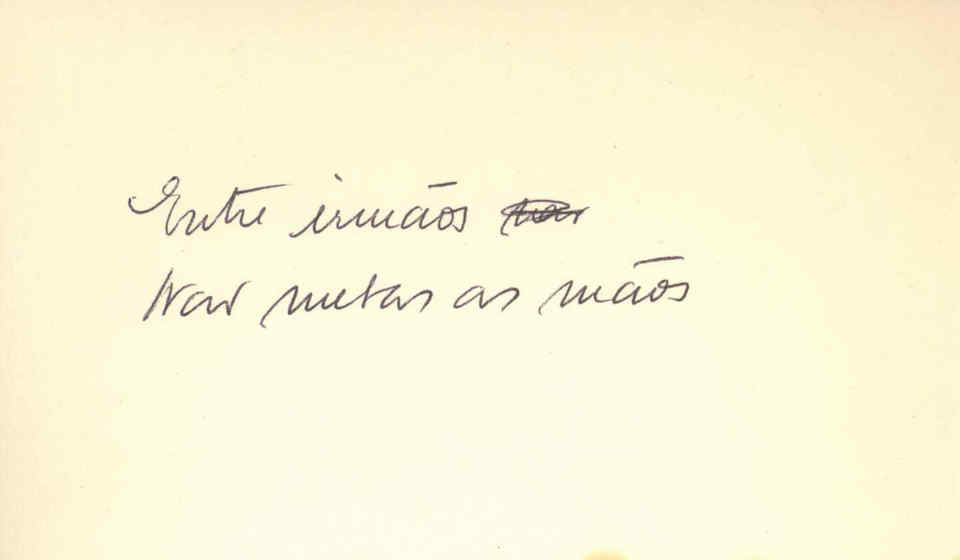 Entre irmãos
Nao metas as mãos